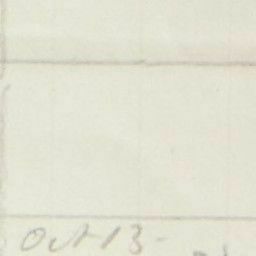 Oct 13-